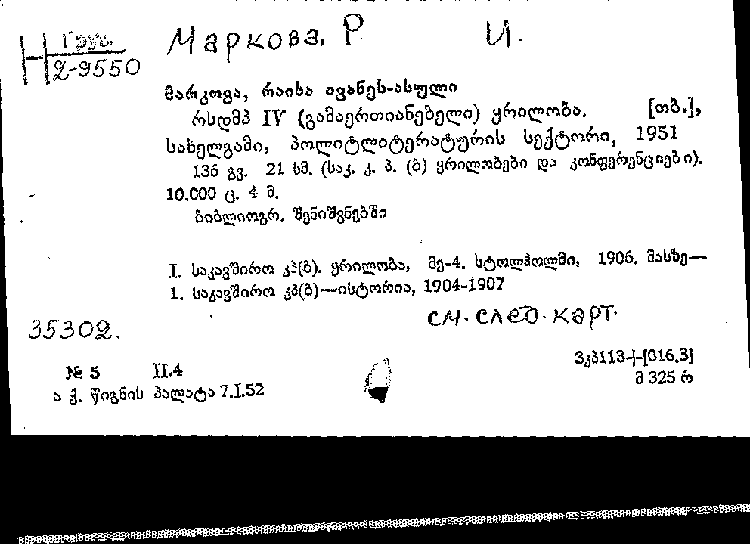 Груз. Маркова. Р И.
Н 2-9550
მარკოვა, რაისა ივანეს-ასული
რსდმპ IV (გამაერთიანებელი) ყრილობა. [თბ.],
სახელგამი, პოლიტლიტერატურის სექტორი, 1951
136 გვ. 21 სმ. (საკ. კ. პ. (ბ) ყრილობები და კონფერენციები).
10.000 ც. 4 მ.
ბიბლიოგრ. შენიშვნებში
I. საკავშირო კპ(ბ). ყრილობა, მე-4. სტოლჰოლმი, 1906. მასზე—
1. საკავშირო კპ(ბ)—ისტორია, 1904-1907
см. след. карт.
35302.
№ 5 II.4 3კპ113+[016.3]
ა ქ. წიგნის პალატა 7.I.52 მ 325 რ